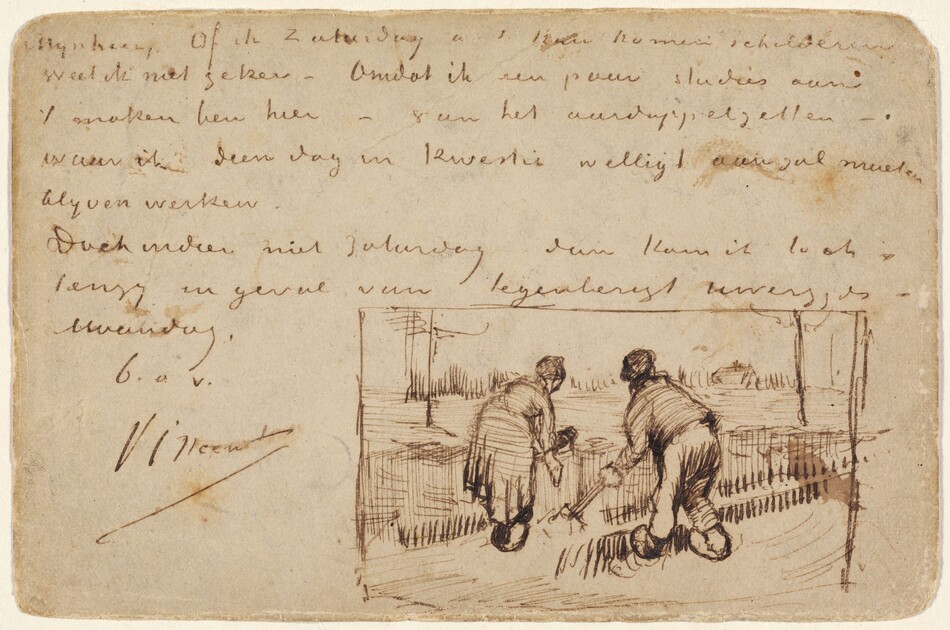 Mynheer, Of ik Zaturdag a s kan komen schilderen
weet ik niet zeker – Omdat ik een paar studies aan
't maken ben hier – van het aardappelzetten –
waar ik dien dag in kwestie welligt aan zal moeten
blyven werken.
Doch indien niet Zaturdag dan kom ik toch
langs in geval van tegenberigt uwerzyds –
Maandag.
b. a v.
Vincent